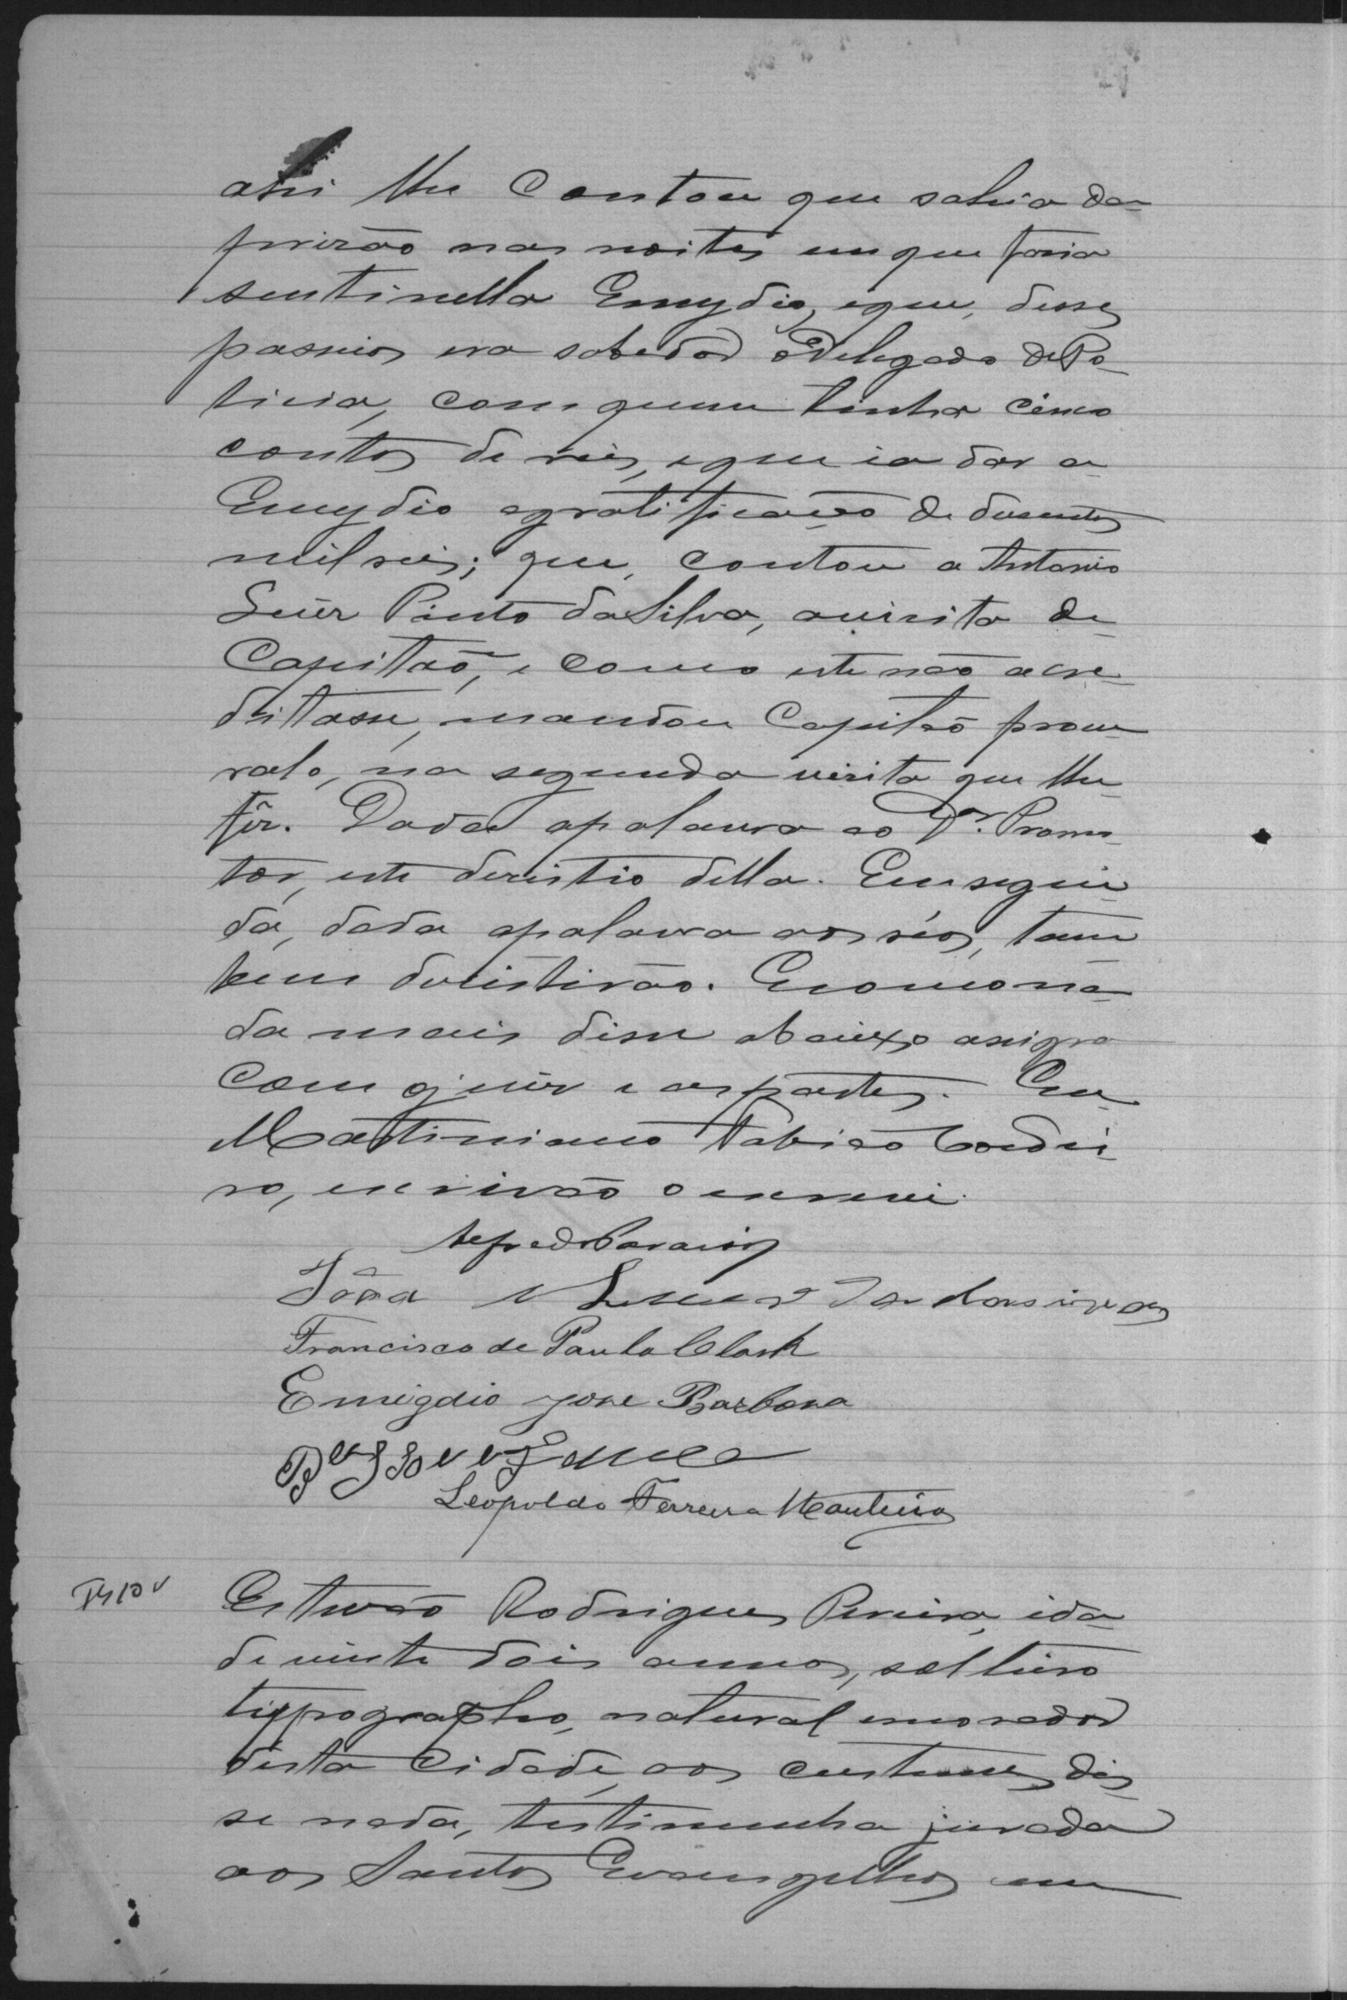 ahi lhe contou que sahia da
prizão nas noites em que fazia
sentinella Emydio, e que, desses
passeios era sabedor o Delegado de Po-
licia, com quem tinha cinco
contos de reis, e que ia dar a
Emydio a gratificação de dusentos
mil reis; que, contou a Antonio
Luiz Pinto da Silva, a visita de
Capitão, e como este não acre-
ditasse, mandou Capitão procu-
ralo, na segunda visita que lhe
fêz. Dada a palavra ao Dr. Promo-
tor, este desistio della. Em segui-
da, dada a palavra aos réos, tam-
bem desistirão. E como na-
da mais disse abaixo assigna
com o juiz e as partes. Eu
Martiniano Fabião Cordei-
ro, escrivão o escrevi.
João
Francisco de Paula Clark
Emigdio Jose Barbosa
Leopoldo Ferreira Monteiro
Estevão Rodrigues Pereira, ida-
de vinte dois annos, solteiro
typographo, natural e morador
desta Cidade, aos costumes dis-
se nada, testimunha jurada
aos Santos Evangelhos em